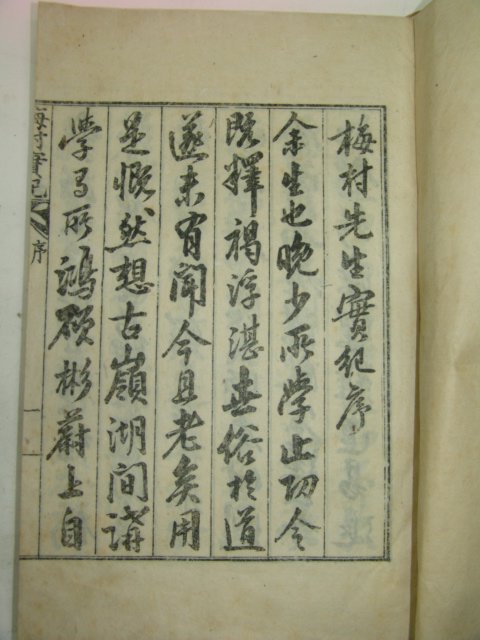 梅村先生實紀序
余生也晚少所學止功令
旣釋褐浮湛世俗於道
遂未有聞今且老矣用
是慨然想古嶺湖間講
學之所鴻碩彬蔚上自
梅村實紀 序 一